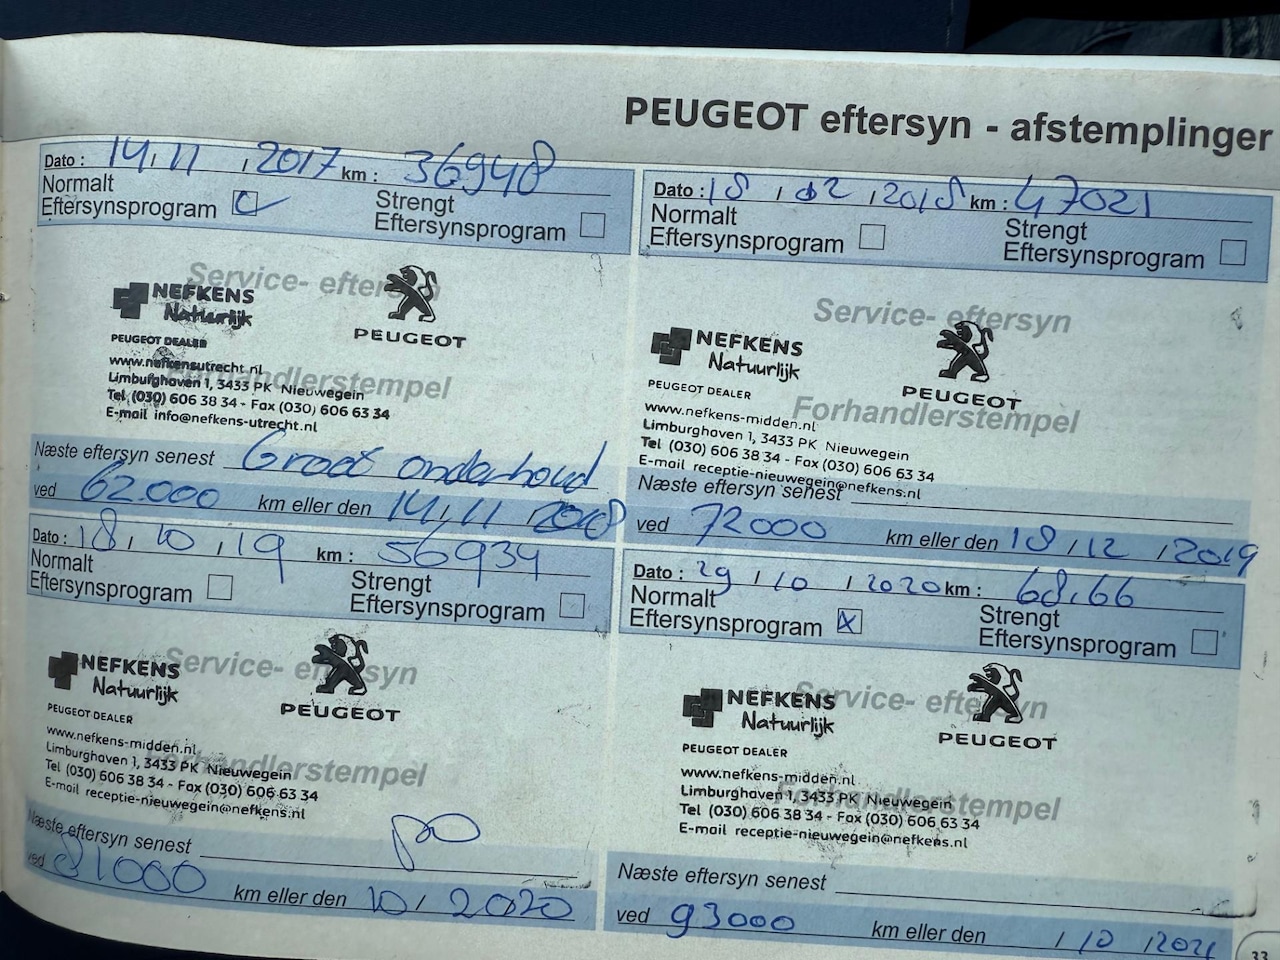 PEUGEOT eftersyn - afstemplinger
Dato : 14, 11 , 2017 km : 36948
Normalt
Eftersynsprogram
Strengt
Eftersynsprogram
Service- eftersyn
NEFKENS
Natuurlijk
PEUGEOT
PEUGEOT DEALER
www.nefkensutrecht.nl
Forhandlerstempel
Limburghaven 1, 3433 PK Nieuwegein
Tel. (030) 606 38 34 - Fax (030) 606 63 34
E-mail info@nefkens-utrecht.nl
Næste eftersyn senest Groot onderhoud
ved 62.000 km eller den 14, 11 , 2018
Dato : 18 , 12 , 2018 km : 47021
Normalt
Eftersynsprogram
Strengt
Eftersynsprogram
Service- eftersyn
NEFKENS
Natuurlijk
PEUGEOT
PEUGEOT DEALER
Forhandlerstempel
www.nefkens-midden.nl
Limburghaven 1, 3433 PK Nieuwegein
Tel (030) 606 38 34 - Fax (030) 606 63 34
E-mail receptie-nieuwegein@nefkens.nl
Næste eftersyn senest
ved 72000 km eller den 18 , 12 , 2019
Dato : 18 , 10 , 19 km : 56934
Normalt
Eftersynsprogram
Strengt
Eftersynsprogram
Service- eftersyn
NEFKENS
Natuurlijk
PEUGEOT
PEUGEOT DEALER
www.nefkens-midden.nl
Forhandlerstempel
Limburghaven 1, 3433 PK Nieuwegein
Tel (030) 606 38 34 - Fax (030) 606 63 34
E-mail receptie-nieuwegein@nefkens.nl
Næste eftersyn senest
ved 81000 km eller den 10 , 2020
Dato : 29 , 10 , 2020 km : 68.66
Normalt
Eftersynsprogram x
Strengt
Eftersynsprogram
Service- eftersyn
NEFKENS
Natuurlijk
PEUGEOT
PEUGEOT DEALER
www.nefkens-midden.nl
Forhandlerstempel
Limburghaven 1, 3433 PK Nieuwegein
Tel (030) 606 38 34 - Fax (030) 606 63 34
E-mail receptie-nieuwegein@nefkens.nl
Næste eftersyn senest
ved 93000 km eller den , 10 , 2021
33